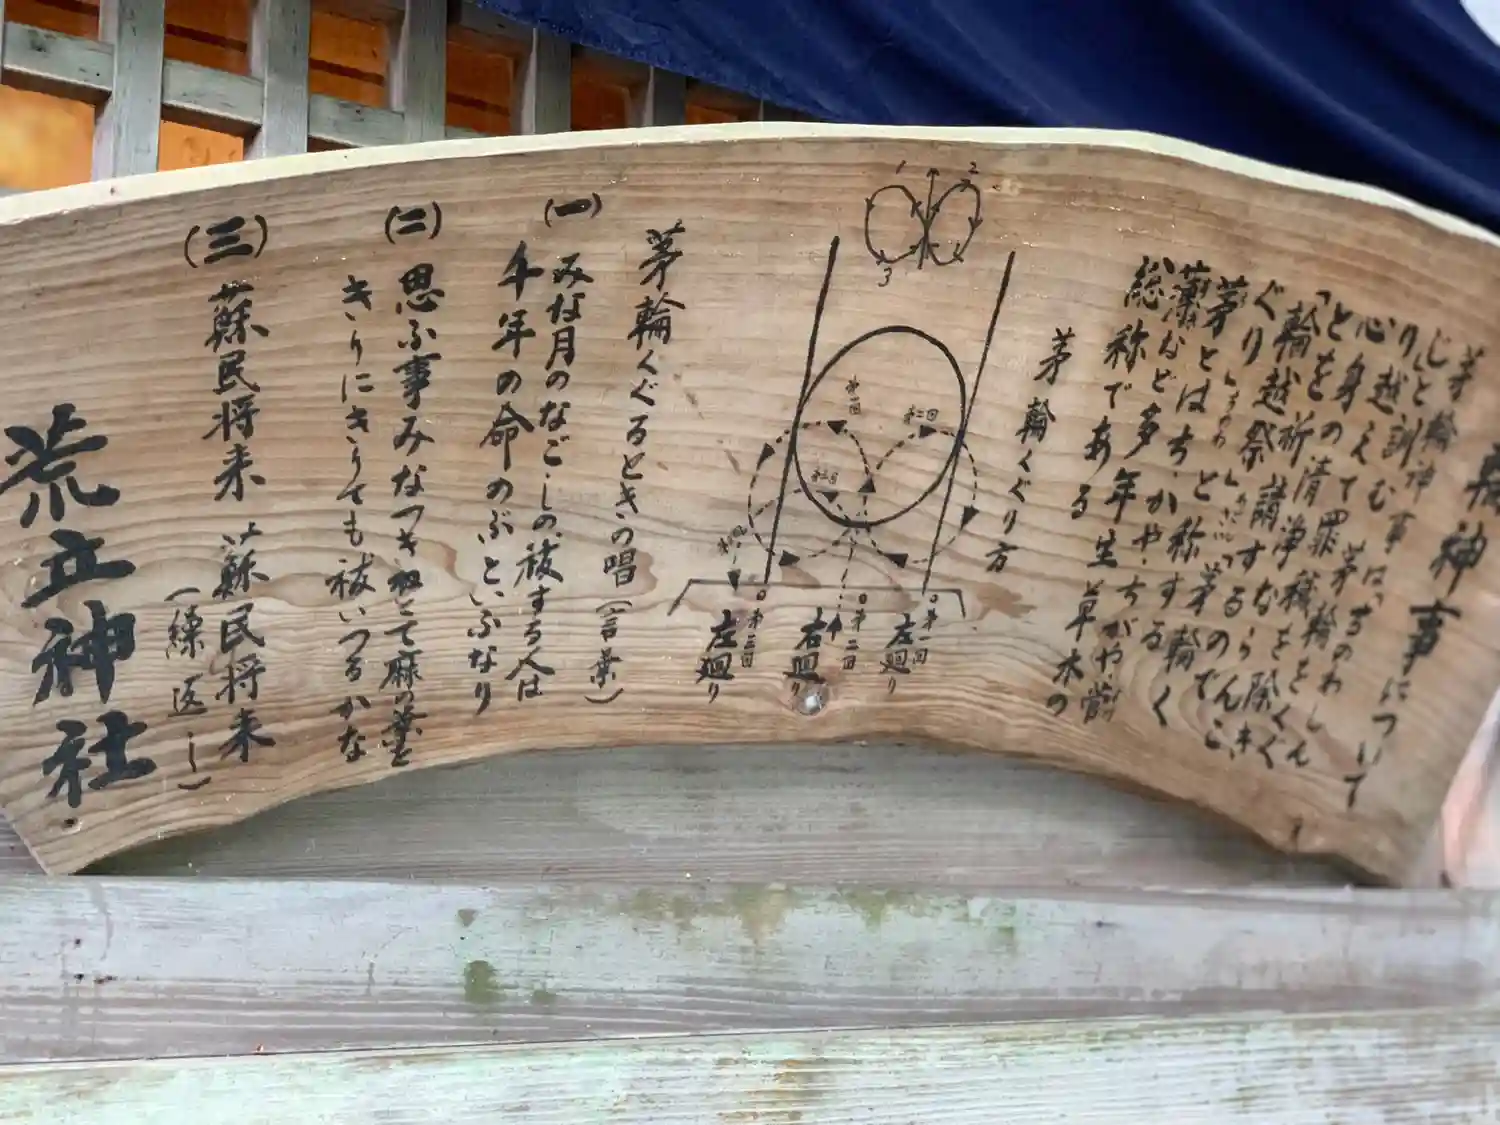 輪神事について
茅輪神事は「ちのわしん
じ」と訓む 茅輪をくぐ
り越えて罪穢を除き、
心身の清浄
とを祈請するならんこ
「輪越祭」「茅輪く
ぐり」とも称する
茅とはち、かや、ちがや、菅
薄など多年生草木の
総称である
茅輪くぐり方
1
2
3
第一回
第二回
第三回
○第一回
左廻り
○第二回
右廻り
○第三回
左廻り
茅輪くぐるときの唱(言葉)
(一) みな月のなごしの祓する人は
千年の命のぶといふなり
(二) 思ふ事みなつきねとて麻の葉を
きりにきりても祓いつるかな
(三) 蘇民将来 蘇民将来
(繰返し)
荒立神社